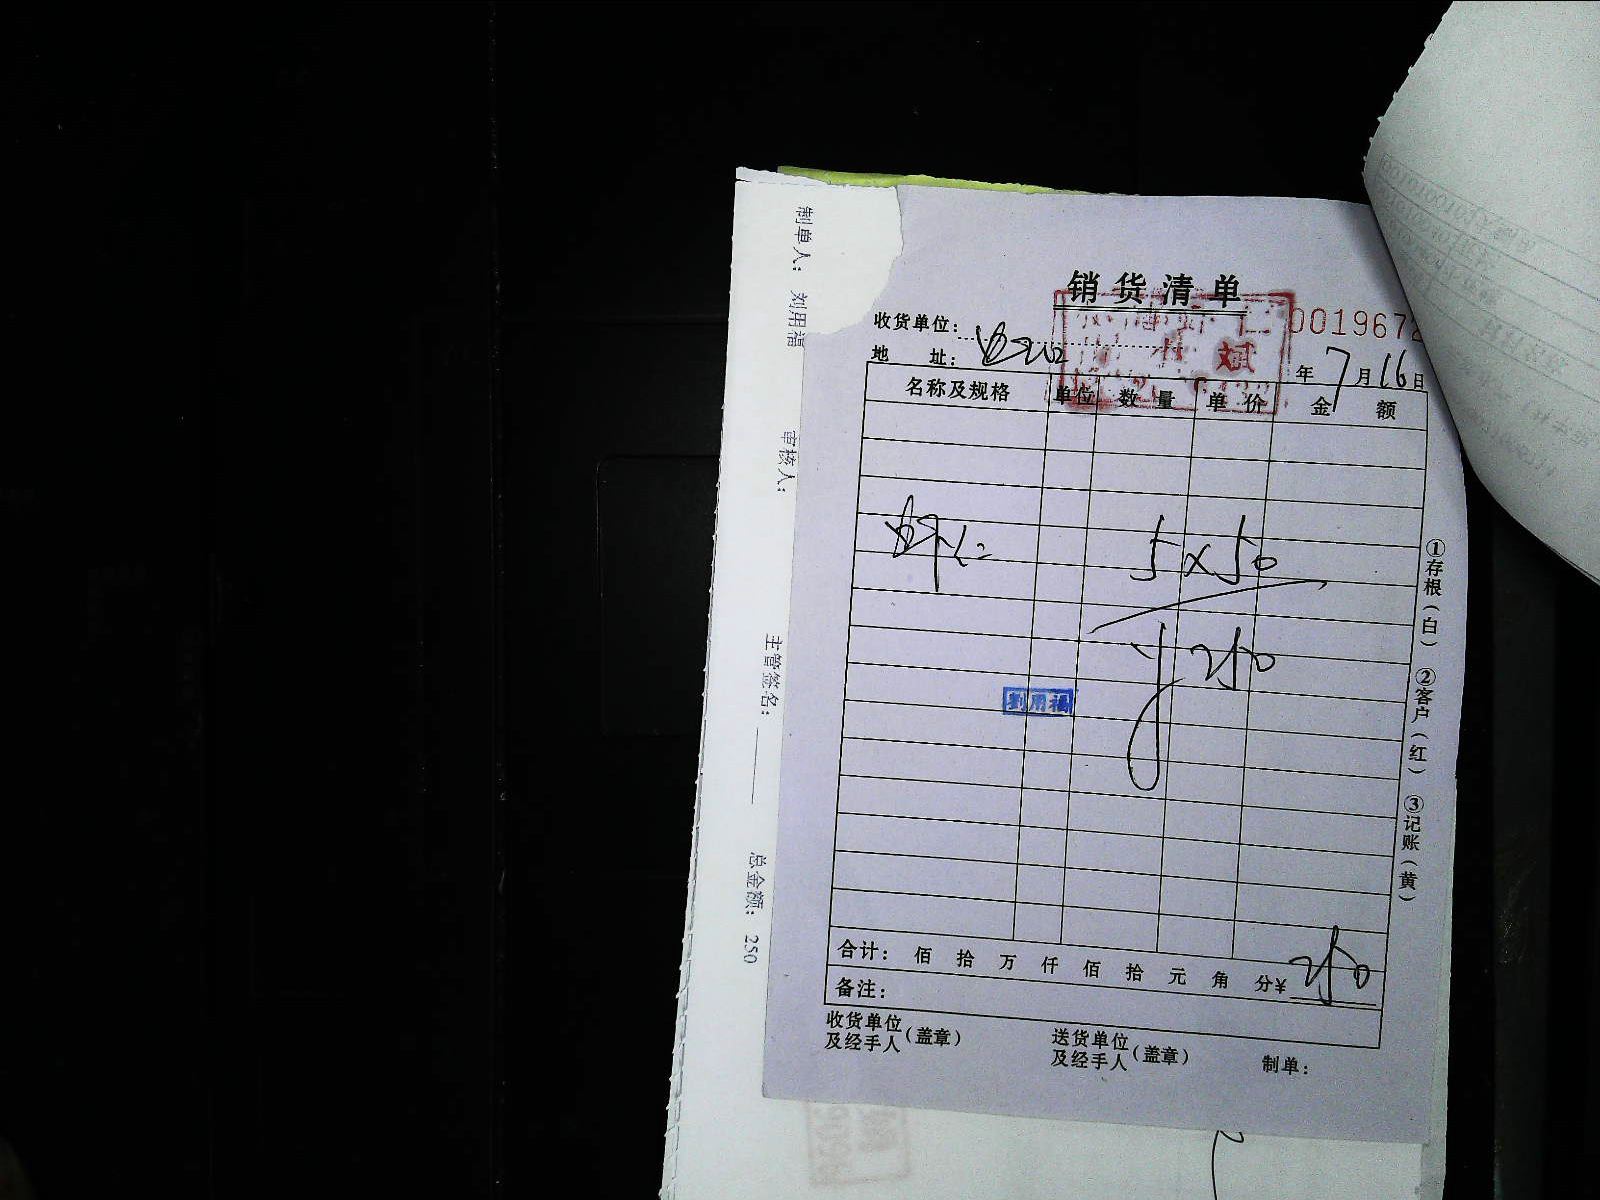 销货清单
收货单位:
001967
地 址:
年7月16日
名称及规格 单位 数量 单价 金额
虾仁 5×50
¥250
刘用福
合计: 佰 拾 万 仟 佰 拾 元 角 分¥ 250
备注:
收货单位及经手人(盖章) 送货单位及经手人(盖章) 制单:
①存根(白) ②客户(红) ③记账(黄)
制单人: 刘用福 审核人: 主管签名: 总金额: 250